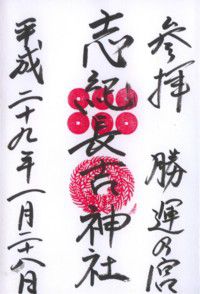 参拝 勝運の宮
志紀長吉神社
平成二十九年一月二十八日